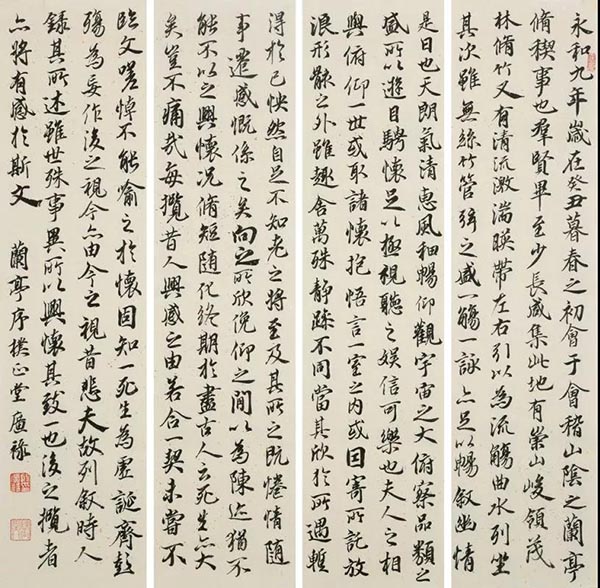 永和九年歲在癸丑暮春之初會于會稽山陰之蘭亭
脩稧事也羣賢畢至少長咸集此地有崇山峻領茂
林脩竹又有清流激湍暎帶左右引以為流觴曲水列坐
其次雖無絲竹管弦之盛一觴一詠亦足以暢敘幽情
是日也天朗氣清惠風和暢仰觀宇宙之大俯察品類之
盛所以遊目騁懷足以極視聽之娛信可樂也夫人之相
與俯仰一世或取諸懷抱悟言一室之內或因寄所託放
浪形骸之外雖趣舍萬殊靜躁不同當其欣於所遇蹔
得於己怏然自足不知老之將至及其所之既惓情隨
事遷感慨係之矣向之所欣俛仰之間以為陳迹猶不
能不以之興懷況脩短隨化終期於盡古人云死生亦大
矣豈不痛哉每攬昔人興感之由若合一契未嘗不
臨文嗟悼不能喻之於懷固知一死生為虛誕齊彭
殤為妄作後之視今亦由今之視昔悲夫故列敘時人
錄其所述雖世殊事異所以興懷其致一也後之攬者
亦將有感於斯文 蘭亭序 樸正堂 廣祿